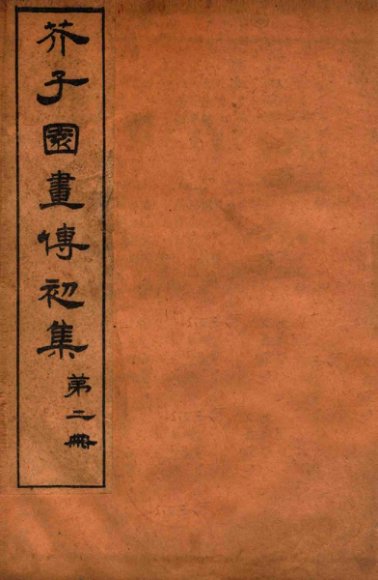 芥子園畫傳初集
第二冊